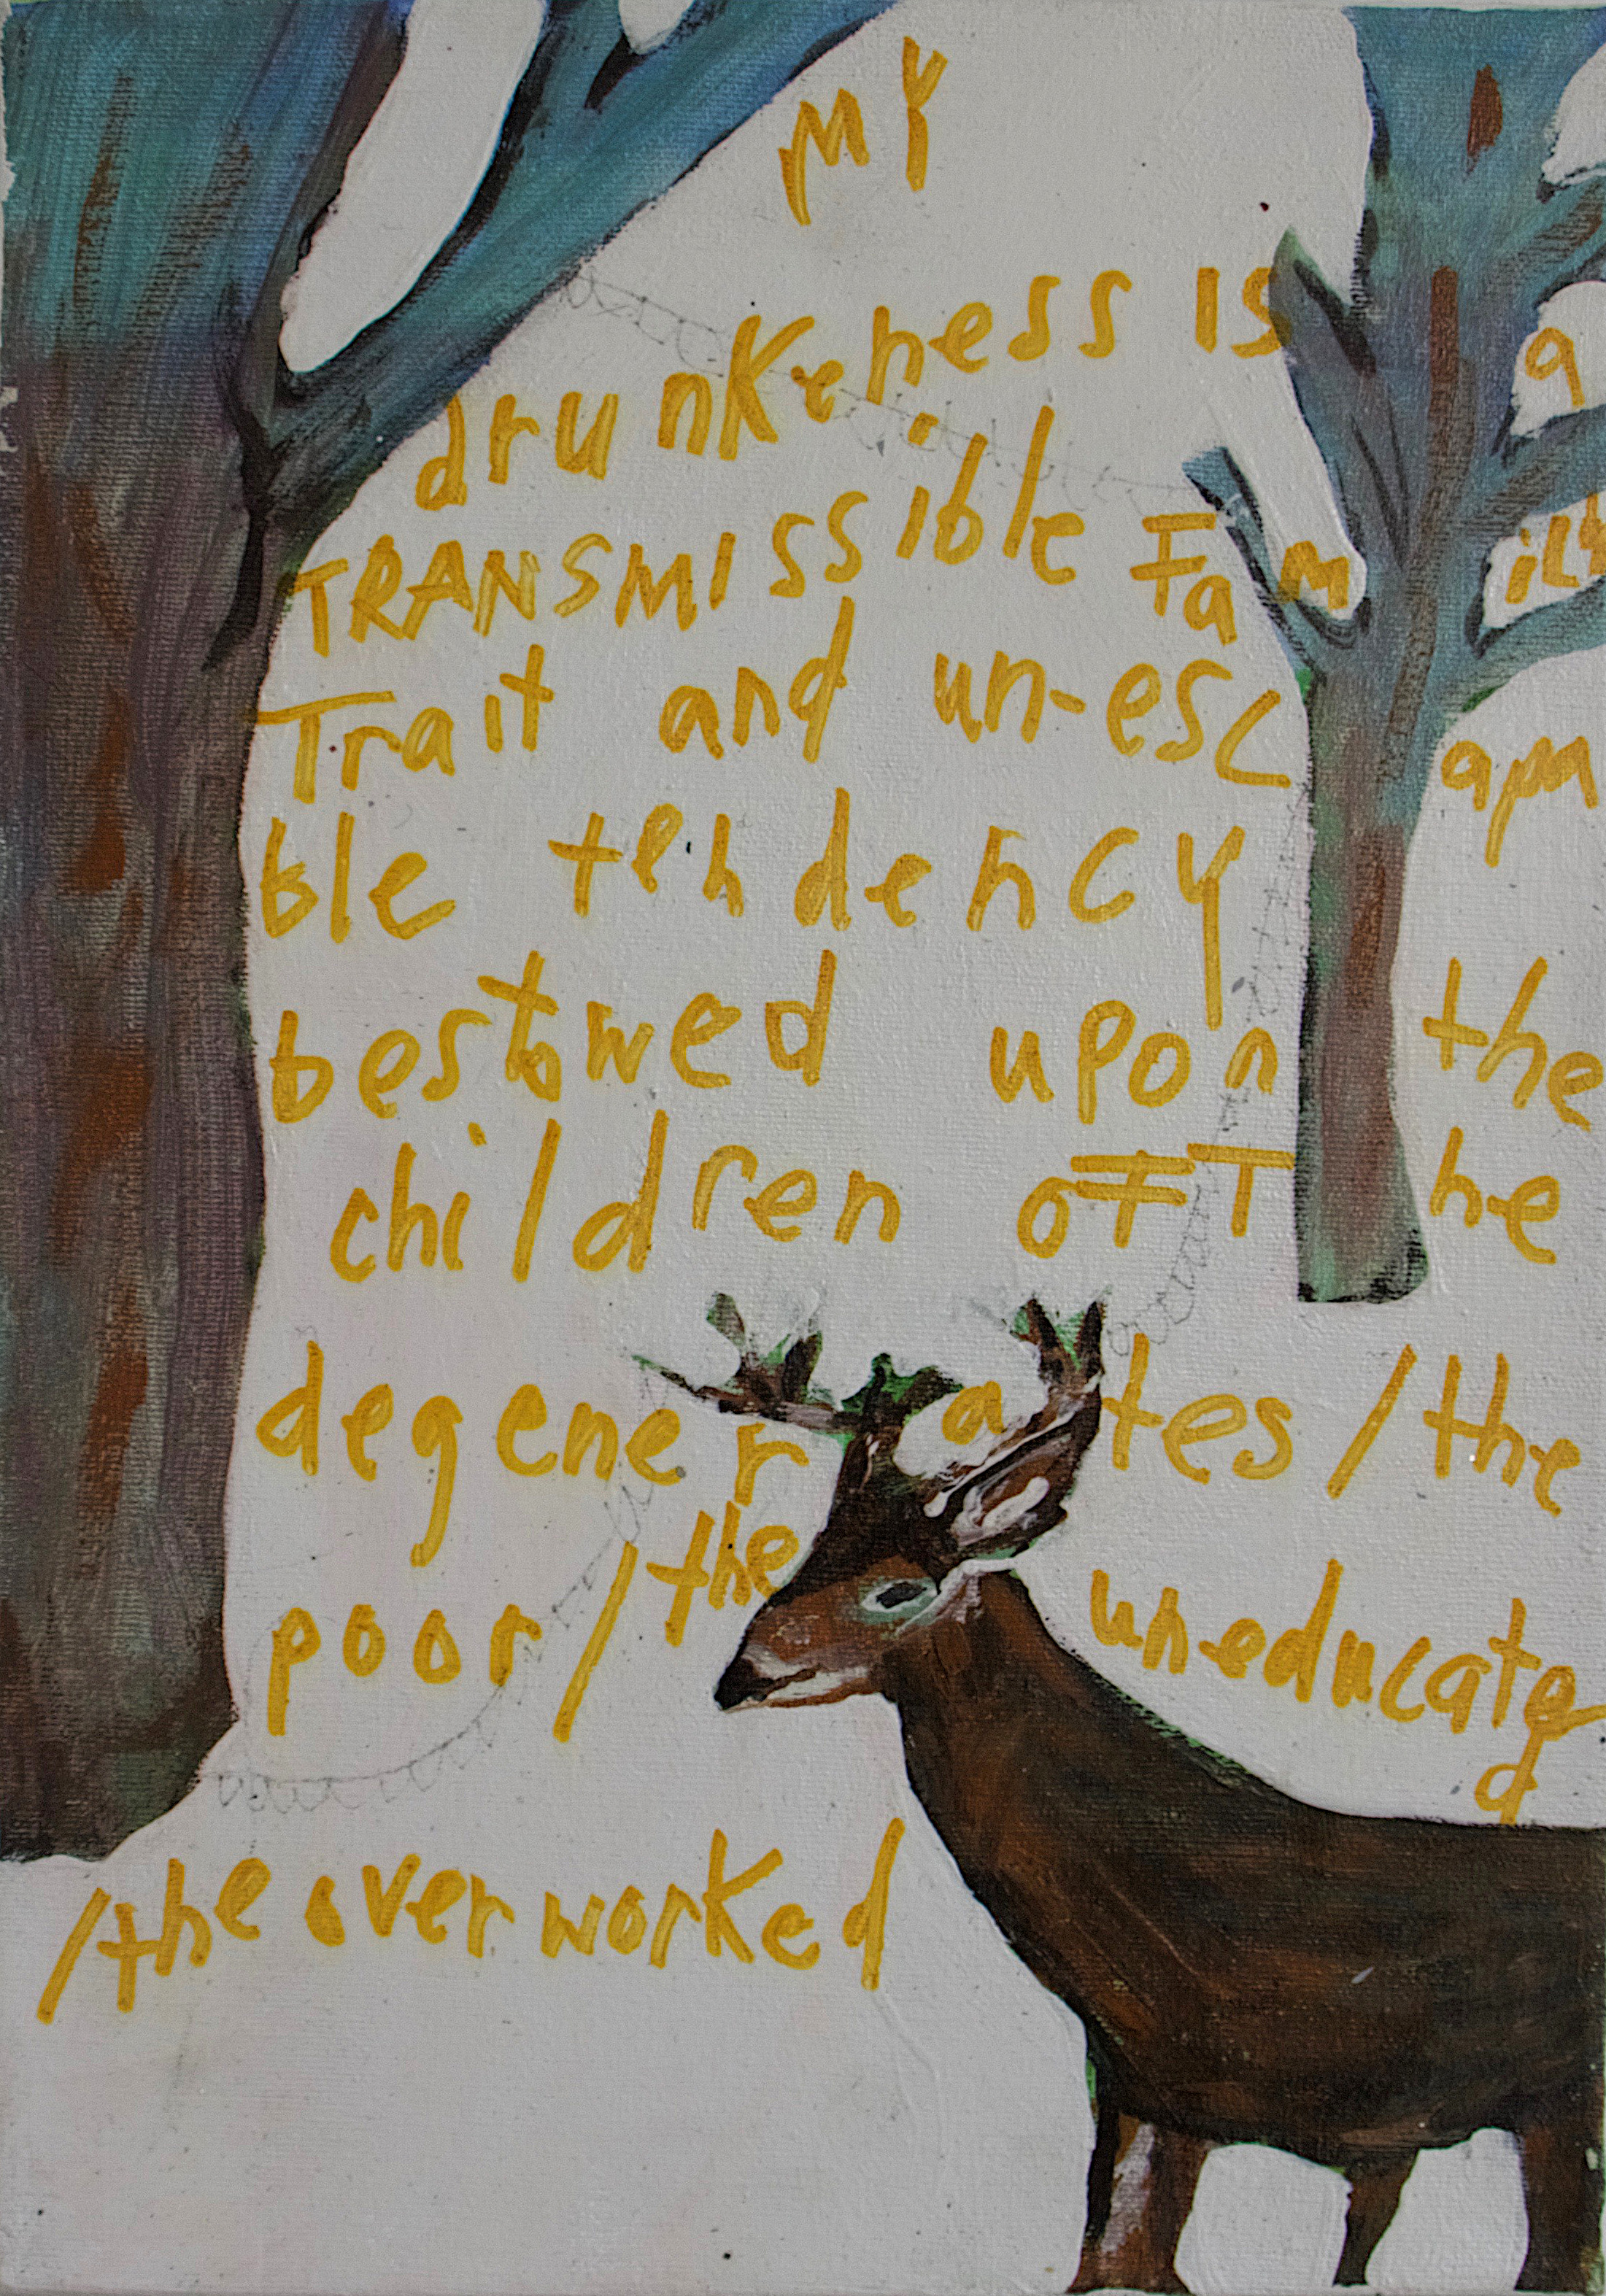 MY
drunkeness is a
TRANSMISSible Family
Trait and un-escapa
ble tendency
bestowed upon the
children oFT he
degenerates/the
poor/the uneducated
/the overworked